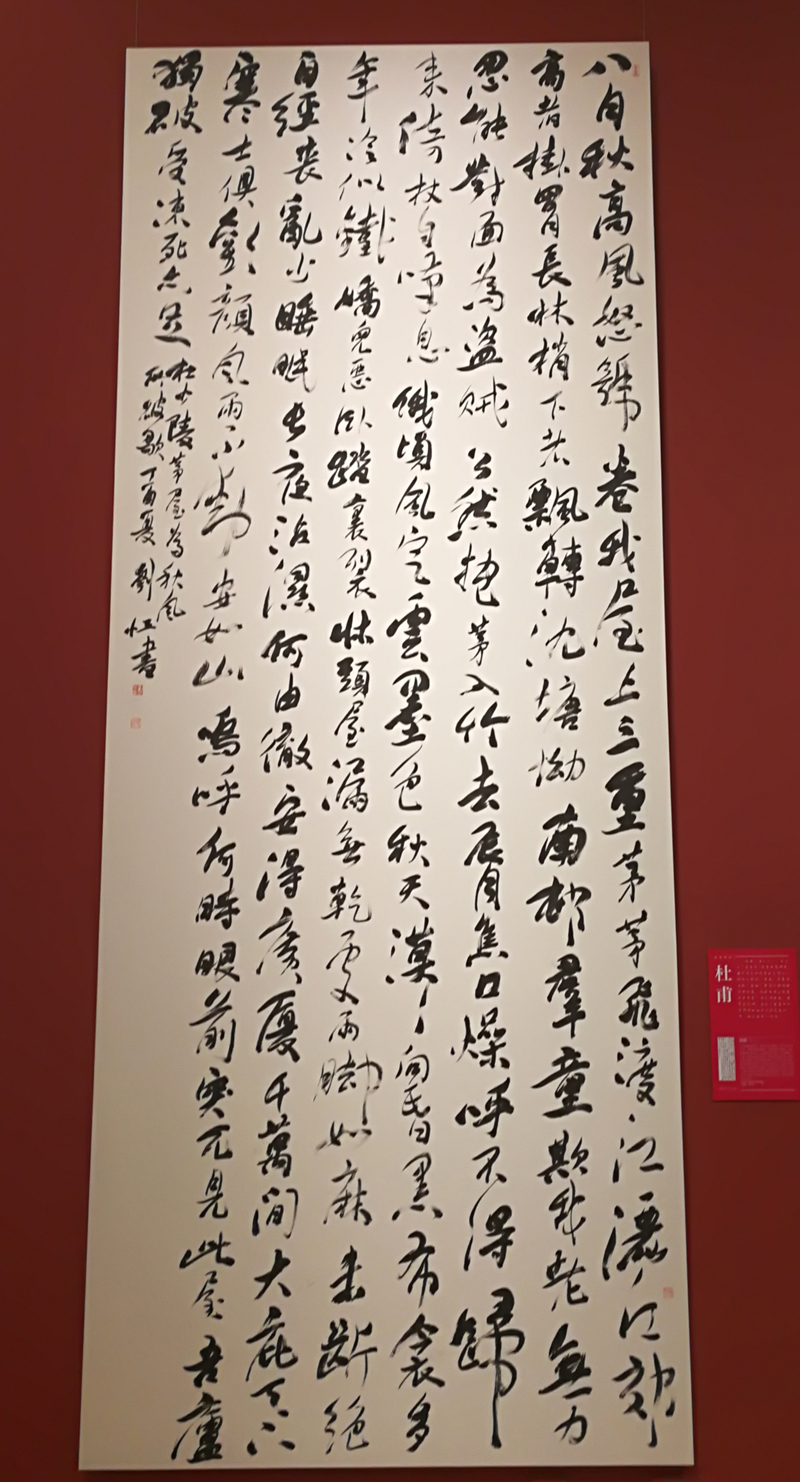 八月秋高風怒號卷我屋上三重茅茅飛渡江灑江郊
高者掛罥長林梢下者飄轉沈塘坳南邨羣童欺我老無力
忍能對面為盜賊公然抱茅入竹去脣焦口燥呼不得歸
来倚杖自嘆息俄頃風定雲墨色秋天漠漠向昏黑布衾多
年冷似鐵嬌兒惡臥踏裏裂牀頭屋漏無乾處雨脚如麻未斷絕
自經喪亂少睡眠長夜沾濕何由徹安得廣廈千萬間大庇天下
寒士俱歡顏風雨不動安如山嗚呼何時眼前突兀見此屋吾廬
獨破受凍死亦足
杜少陵茅屋為秋風
所破歌丁酉夏劉恒書
杜甫